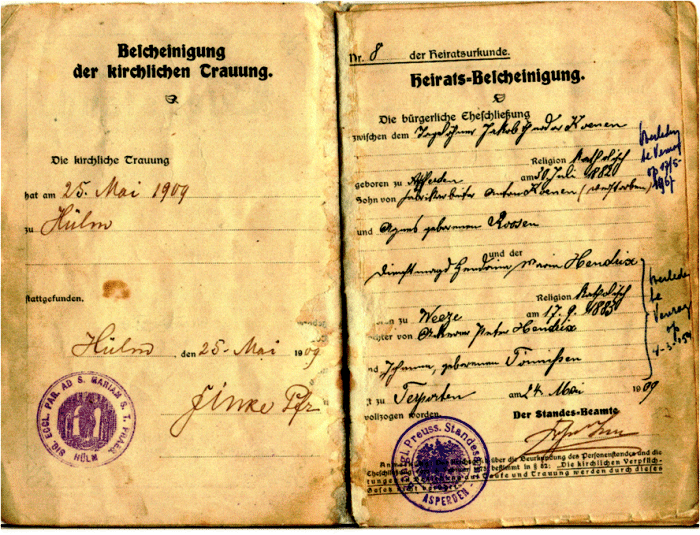 Bescheinigung
der kirchlichen Trauung.
Die kirchliche Trauung
hat am 25. Mai 1909
zu Hülm
stattgefunden.
Hülm, den 25. Mai 1909
SIG. ECCL. PAR. AD S. MARIAM S. T. PRAES.
HÜLM
Nr. 8 der Heiratsurkunde.
Heirats-Bescheinigung.
Die bürgerliche Eheschließung
zwischen dem Tagelöhner Jakob Koenen
Religion katholisch
geboren zu Asperden am 30 Juli 1882
Sohn von Fabrikarbeiter Anton Koenen (verstorben)
und Agnes geborenen Roosen
und der
Dienstmagd Hendrina Maria Hendrix
Religion katholisch
zu Weeze am 17. 9. 1885
Ackerer Peter Hendrix
und Johanna, geborenen Tönnissen
zu Terporten am 24. Mai 1909
vollzogen worden.
Der Standes-Beamte
Kgl. Preuss. Standes
ASPERDEN
über die Beurkundung des Personenstandes und die
bestimmt in § 82: „Die kirchlichen Verpflich-
Taufe und Trauung werden durch dieses
Overleden
te Venray
op 17/5-
1967
Overleden
te
Venray
op